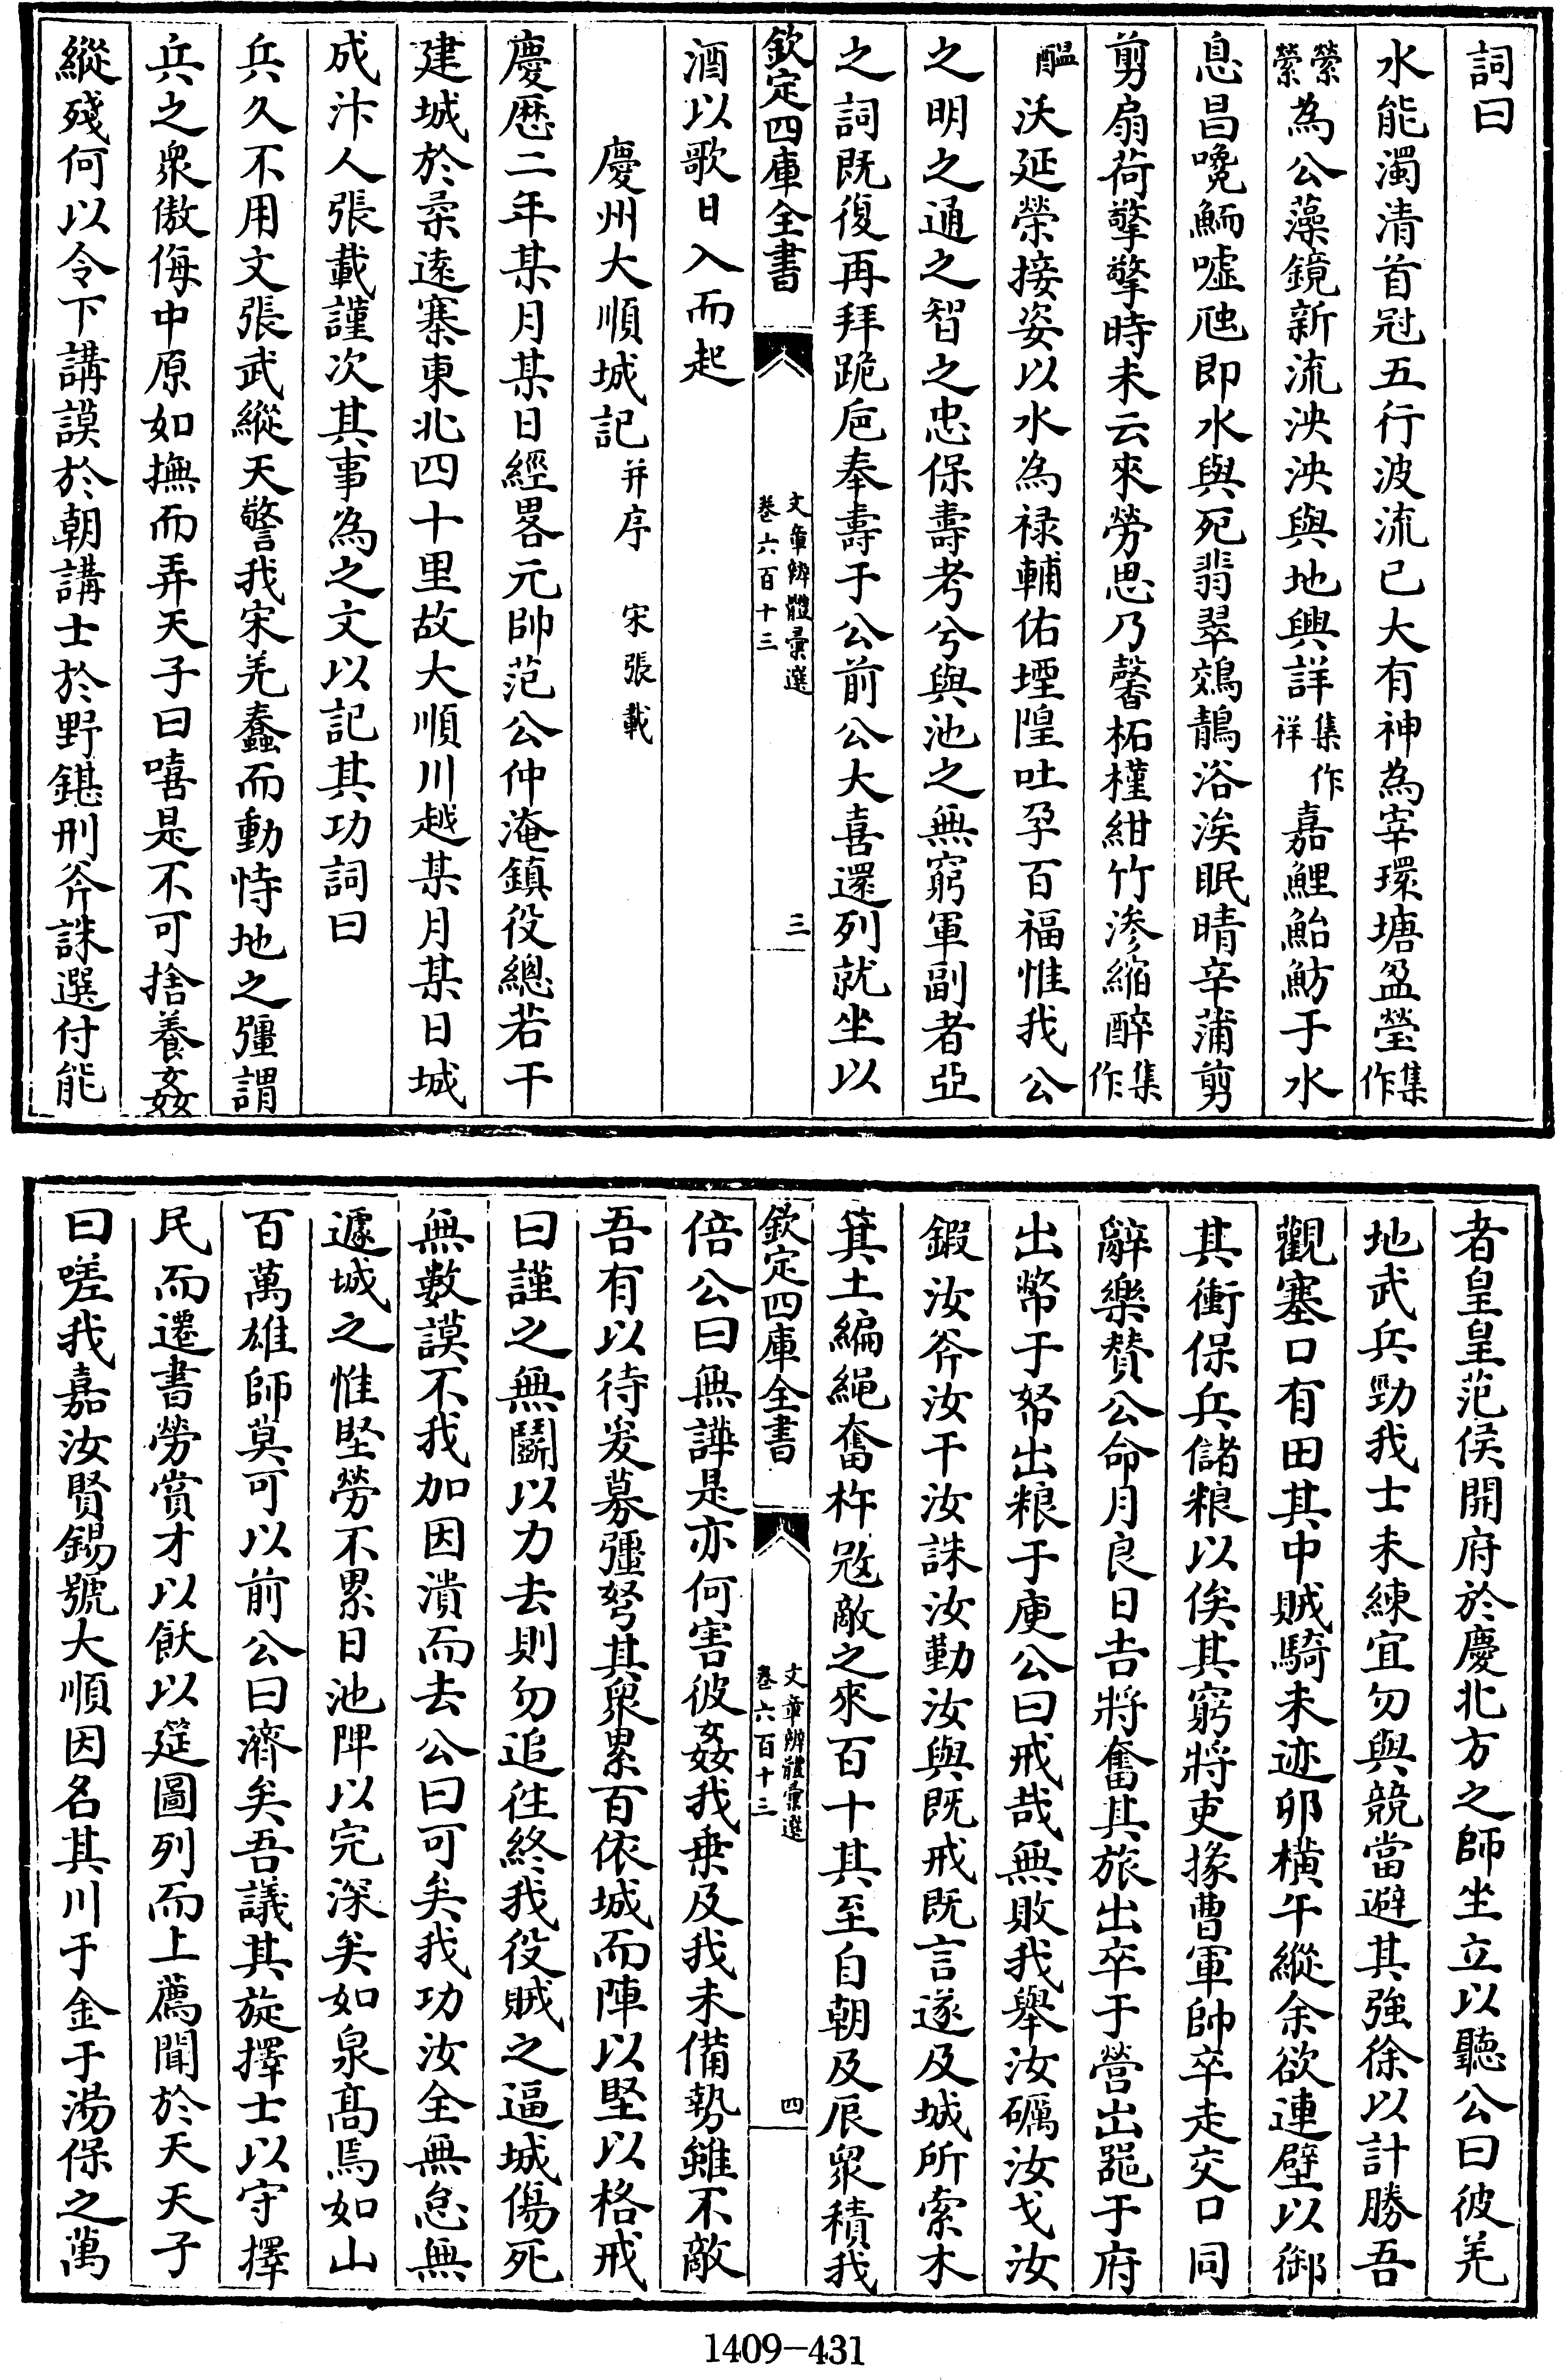 詞曰
水能濁清首冠五行波流已大有神為宰環塘盈瑩集作
縈縈為公藻鏡新流泱泱與地興詳集作祥嘉鯉鮐魴于水
息昌嚵鮞噓虺即水與死翡翠鵁鶄浴涘眠晴辛蒲剪
剪扇荷擎擎時未云來勞思乃馨柘槿紺竹滲縮醉集作
醖沃延榮接姿以水為禄輔佑堙隍吐孕百福惟我公
之明之通之智之忠保壽考兮與池之無窮軍副者亞
之詞既復再拜跪巵奉壽于公前公大喜還列就坐以
欽定四庫全書
文章辨體彚選
卷六百十三
三
酒以歌日入而起
慶州大順城記并序 宋張載
慶歴二年某月某日經畧元帥范公仲淹鎮役總若干
建城於柔逺寨東北四十里故大順川越某月某日城
成汴人張載謹次其事為之文以記其功詞曰
兵久不用文張武縱天警我宋羌蠢而動恃地之彊謂
兵之衆傲侮中原如撫而弄天子曰嘻是不可捨養姦
縱殘何以令下講謨於朝講士於野鍖刑斧誅選付能
者皇皇范侯開府於慶北方之師坐立以聽公曰彼羌
地武兵勁我士未練宜勿與競當避其強徐以計勝吾
觀塞口有田其中賊騎未迹卯橫午縱余欲連壁以御
其衝保兵儲粮以俟其窮將吏掾曹軍帥卒走交口同
辭樂贊公命月良日吉將奮其旅出卒于營出噐于府
出幣于帑出粮于庾公曰戒哉無敗我舉汝礪汝戈汝
鍜汝斧汝干汝誅汝勤汝與既戒既言遂及城所索木
箕土編繩奮杵冦敵之來百十其至自朝及辰衆積我
欽定四庫全書
文章辨體彚選
卷六百十三
四
倍公曰無譁是亦何害彼姦我乗及我未備勢雖不敵
吾有以待爰募彊弩其衆累百依城而陣以堅以格戒
曰謹之無鬭以力去則勿追徃終我役賊之逼城傷死
無數謨不我加因潰而去公曰可矣我功汝全無怠無
遽城之惟堅勞不累日池陴以完深矣如泉髙焉如山
百萬雄師莫可以前公曰濟矣吾議其旋擇士以守擇
民而遷書勞賞才以飫以筵圖列而上薦聞於天天子
曰嗟我嘉汝賢錫號大順因名其川于金于湯保之萬
1409-431